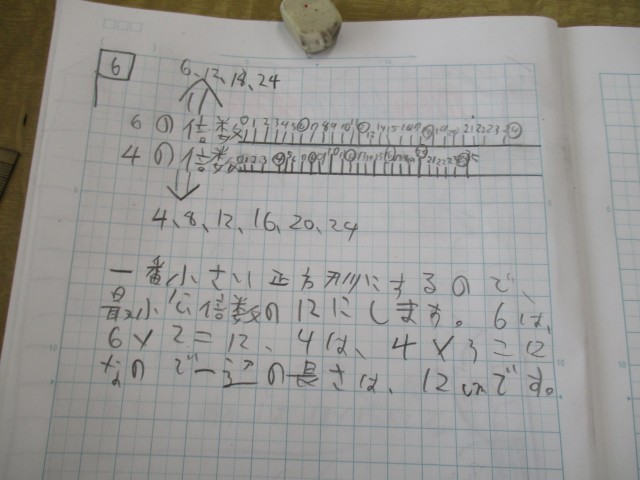 6
6、12、18、24
6の倍数
4の倍数
4、8、12、16、20、24
一番小さい正方形にするので、
最小公倍数の12にします。6は、
6×2＝12、4は、4×3＝12
なので一辺の長さは、12cmです。